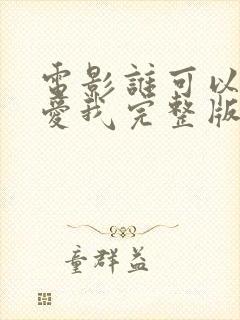 電影誰可以
愛我完整版
童群益